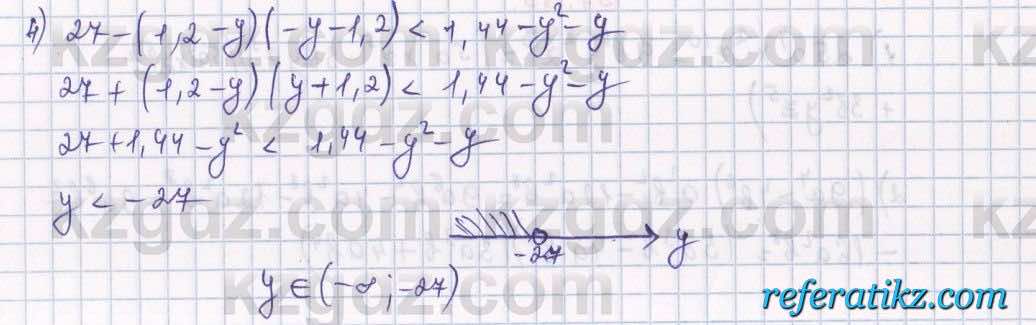 4) 27 - (1,2 - y)(-y - 1,2) < 1,44 - y² - y
27 + (1,2 - y)(y + 1,2) < 1,44 - y² - y
27 + 1,44 - y² < 1,44 - y² - y
y < -27
-27 y
y ∈ (-∞; -27)
kzgdz.com
referatikz.com